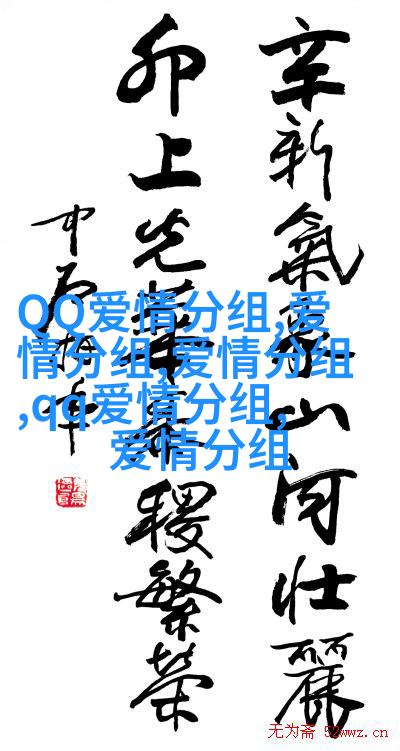 辛新氣象山河壮麗
卯上光華稷繁荣
中石
QQ爱情分组,爱
情分组,爱情分组
,qq爱情分组,
爱情分组
无为斋 52wwz.cn